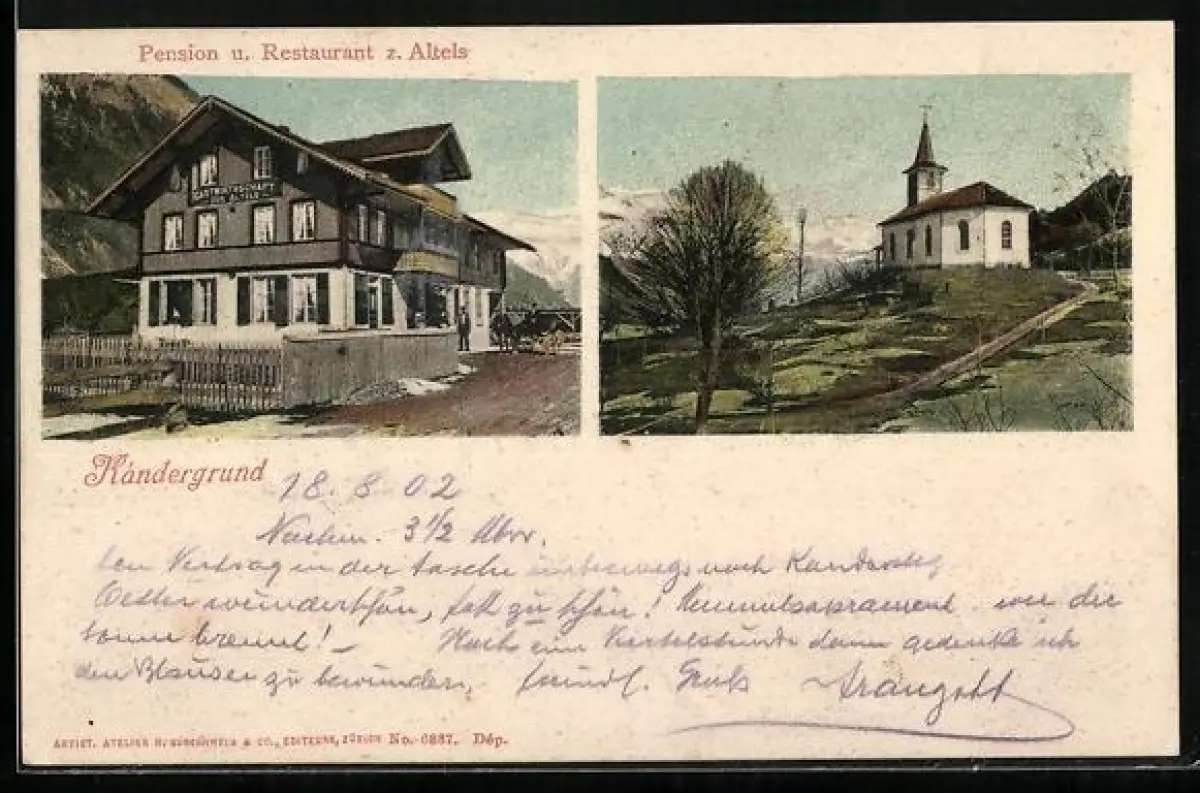 Pension u. Restaurant z. Altels
GASTWIRTHSCHAFT
Kandergrund
18. 8. 02
Nachm. 3 1/2 Uhr.
den Vertrag in der Tasche unterwegs nach Kandersteg
Wetter wunderschön, fast zu schön! wie die
Sonne brennt! – Noch eine Viertelstunde dann gedenke ich
den Blausee zu bewundern, freundl. Gruss
ARTIST. ATELIER H. & CO., EDITEURS, ZÜRICH No. 6887. Dép.